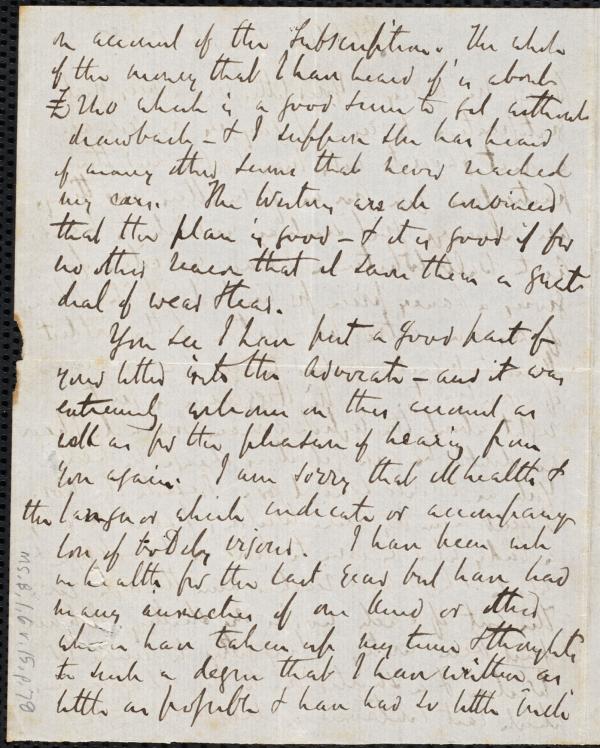 on account of the Subscription. The whole
of the money that I have heard of is about
£ which is a good sum to get without
drawback – & I suppose she has heard
of many other sums that never reached
my ears. The Westons are all convinced
that the plan is good – & it is good if for
no other reason that it saves them a great
deal of wear & tear.
You see I have put a good part of
your letter into the Advocate – and it was
extremely welcome on this account as
well as for the pleasure of hearing from
you again. I am sorry that ill health &
the languor which indicate or accompany
loss of bodily vigour. I have been well
in health for the last year but have had
many anxieties of one kind or other
which have taken up my time & thoughts
to such a degree that I have written as
little as possible & have had so little incli
MS.B.1.6 v.15, p.79